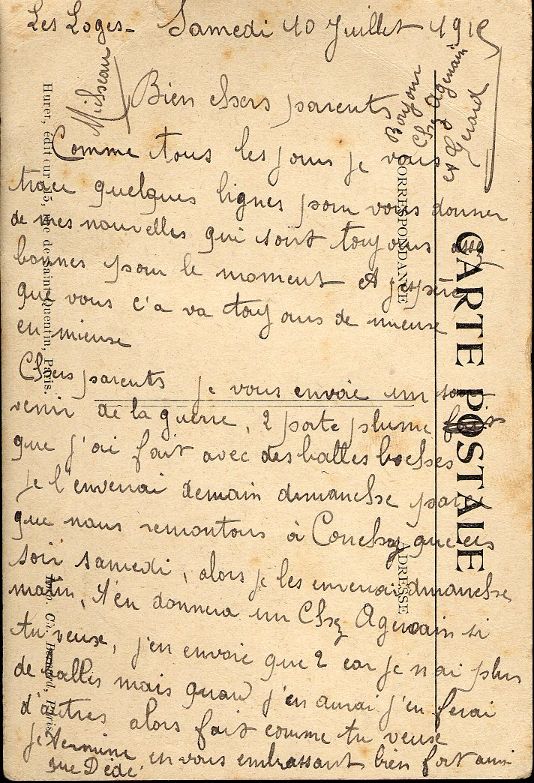 Les Loges - Samedi 10 Juillet 1915
Bonjour
Chez Agenain
et Gérard
Bien chers parents
Comme tous les jours je vous
trace quelques lignes pour vous donner
de mes nouvelles qui sont toujours
bonnes pour le moment et j'espère
que vous c'a va toujours de mieuse
en mieuse
Chers parents je vous envoie un sou
venir de la guerre, 2 porte plume
que j'ai fait avec des balles boches
je l'enverrai demain dimanche par
que nous remontons à que ces
soir samedi, alors je les enverrai dimanche
matin, t'en donnera un Chez Agenain si
tu veuse, j'en envoie que 2 car je n'ai plus
de balles mais quand j'en aurai j'en ferai
d'autres alors fait comme tu veuse
je termine en vous embrassant bien fort ainsi
que Dédé.
CARTE POSTALE
CORRESPONDANCE
ADRESSE
Huret, éditeur, 15, rue de Saint-Quentin, Paris.